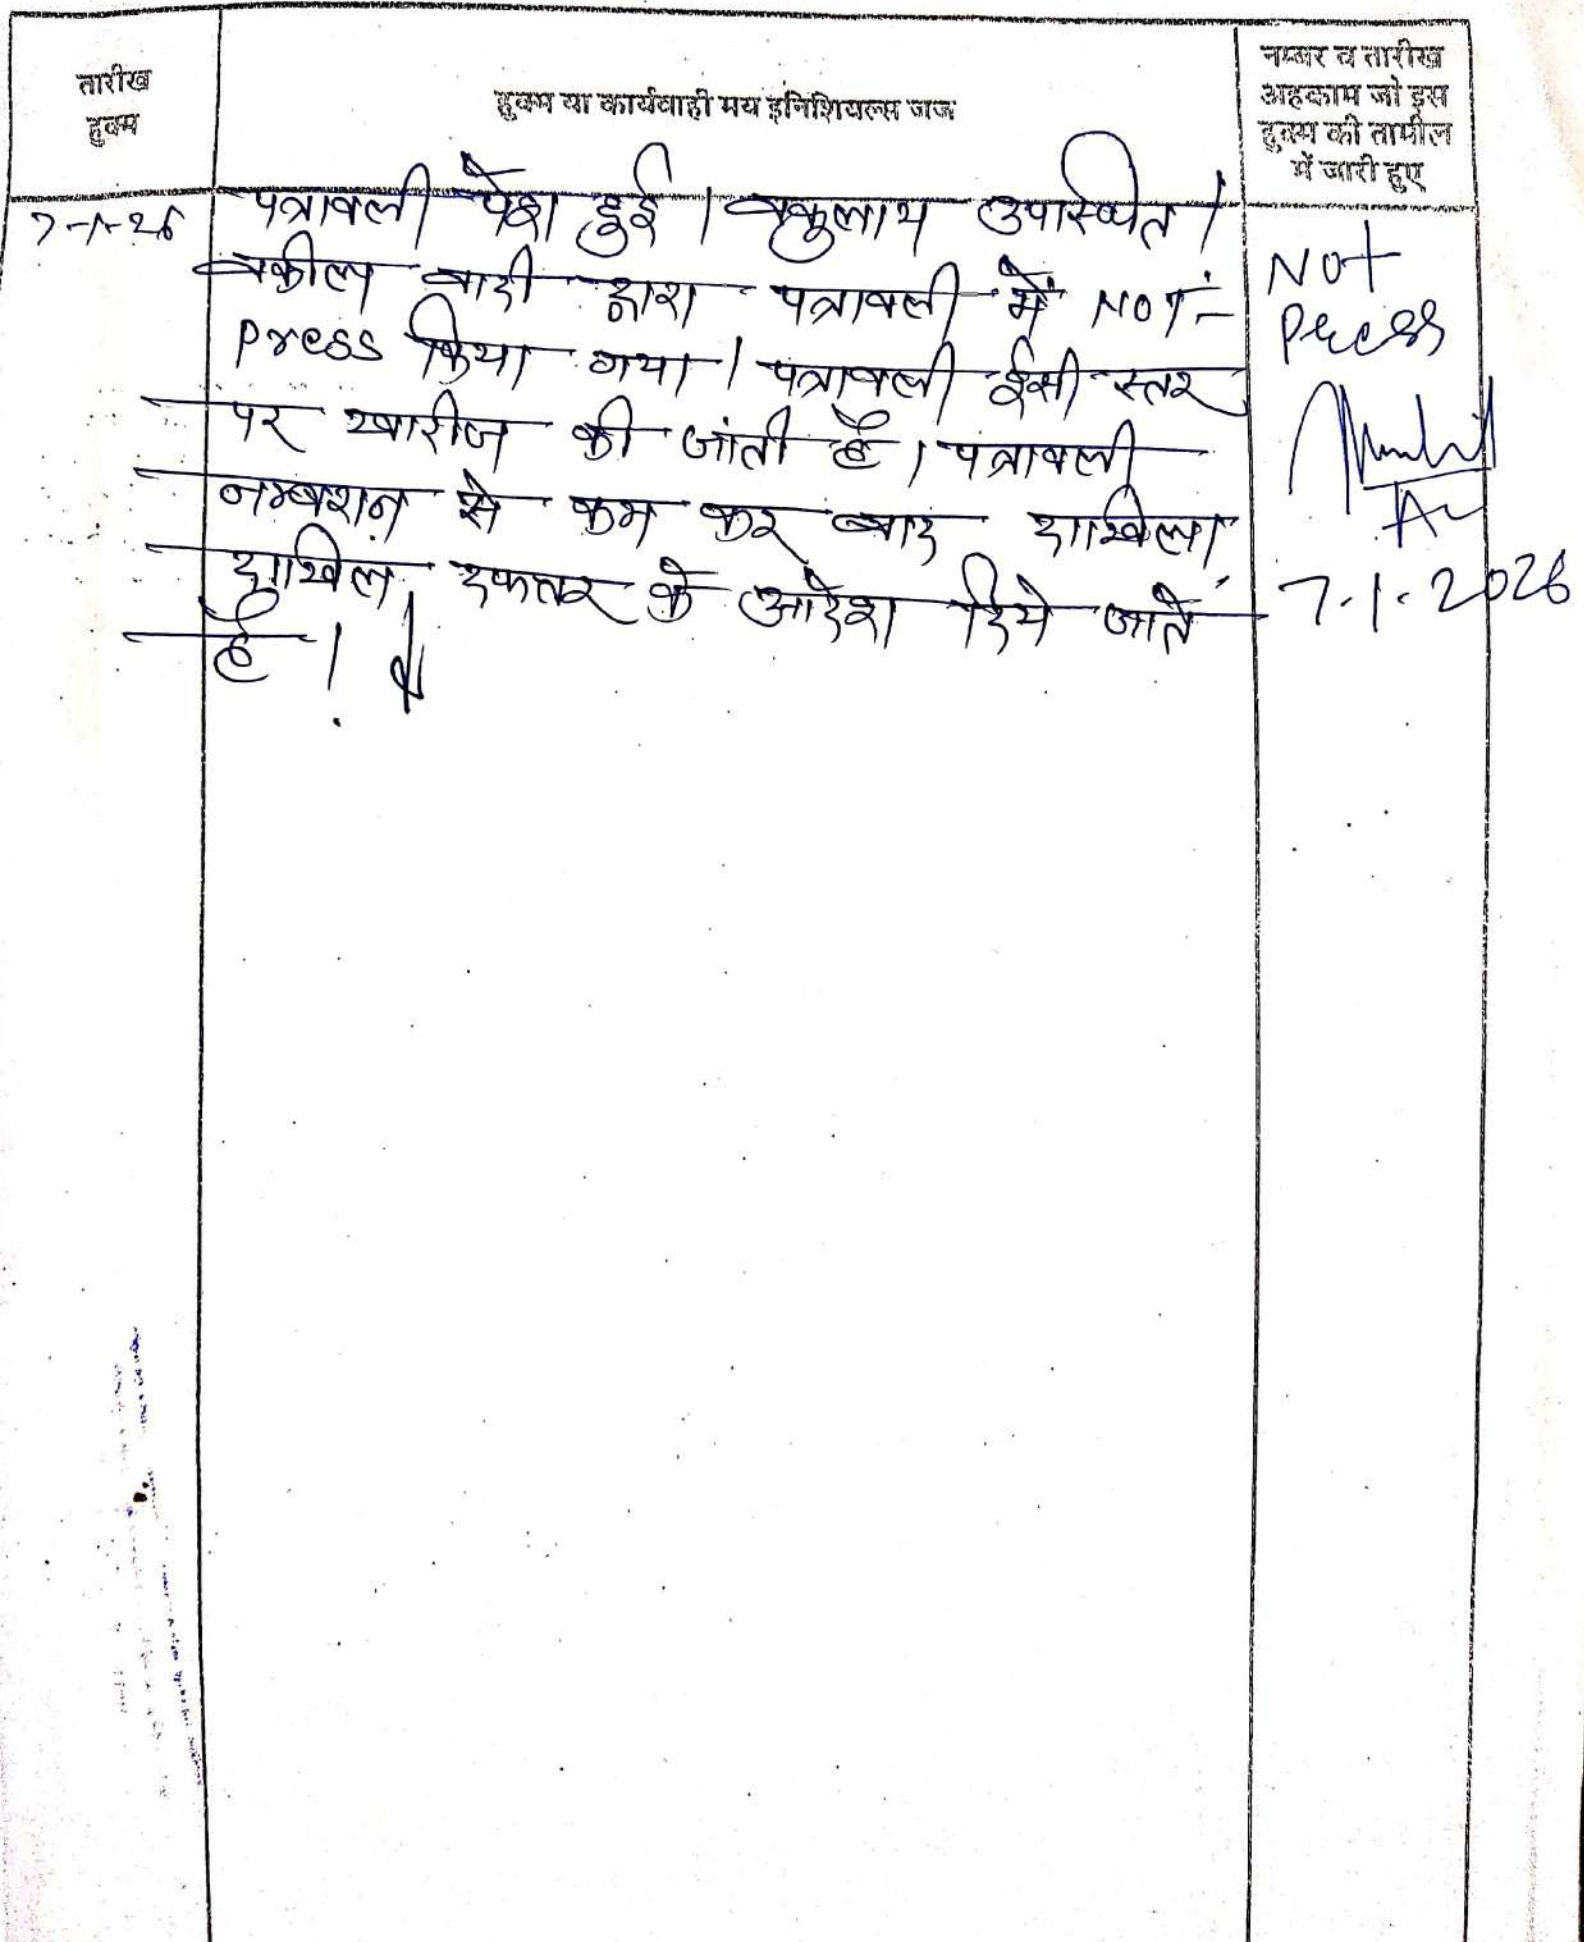 तारीख
हुक्म
हुक्म या कार्यवाही मय इनिशियल्स जज
नम्बर व तारीख
अहकाम जो इस
हुक्म की तामील
में जारी हुए
7-1-26
पत्रावली पेश हुई । वकुलाय उपस्थित ।
वकील वादी द्वारा पत्रावली में NOT-
Press किया गया । पत्रावली ईसी स्तर
पर खारीज की जाती है । पत्रावली
नम्बरान से कम कर बाद दाखिला
दाखिल दफ्तर के आदेश दिये जाते
है ।
Not
Press
7-1-2026